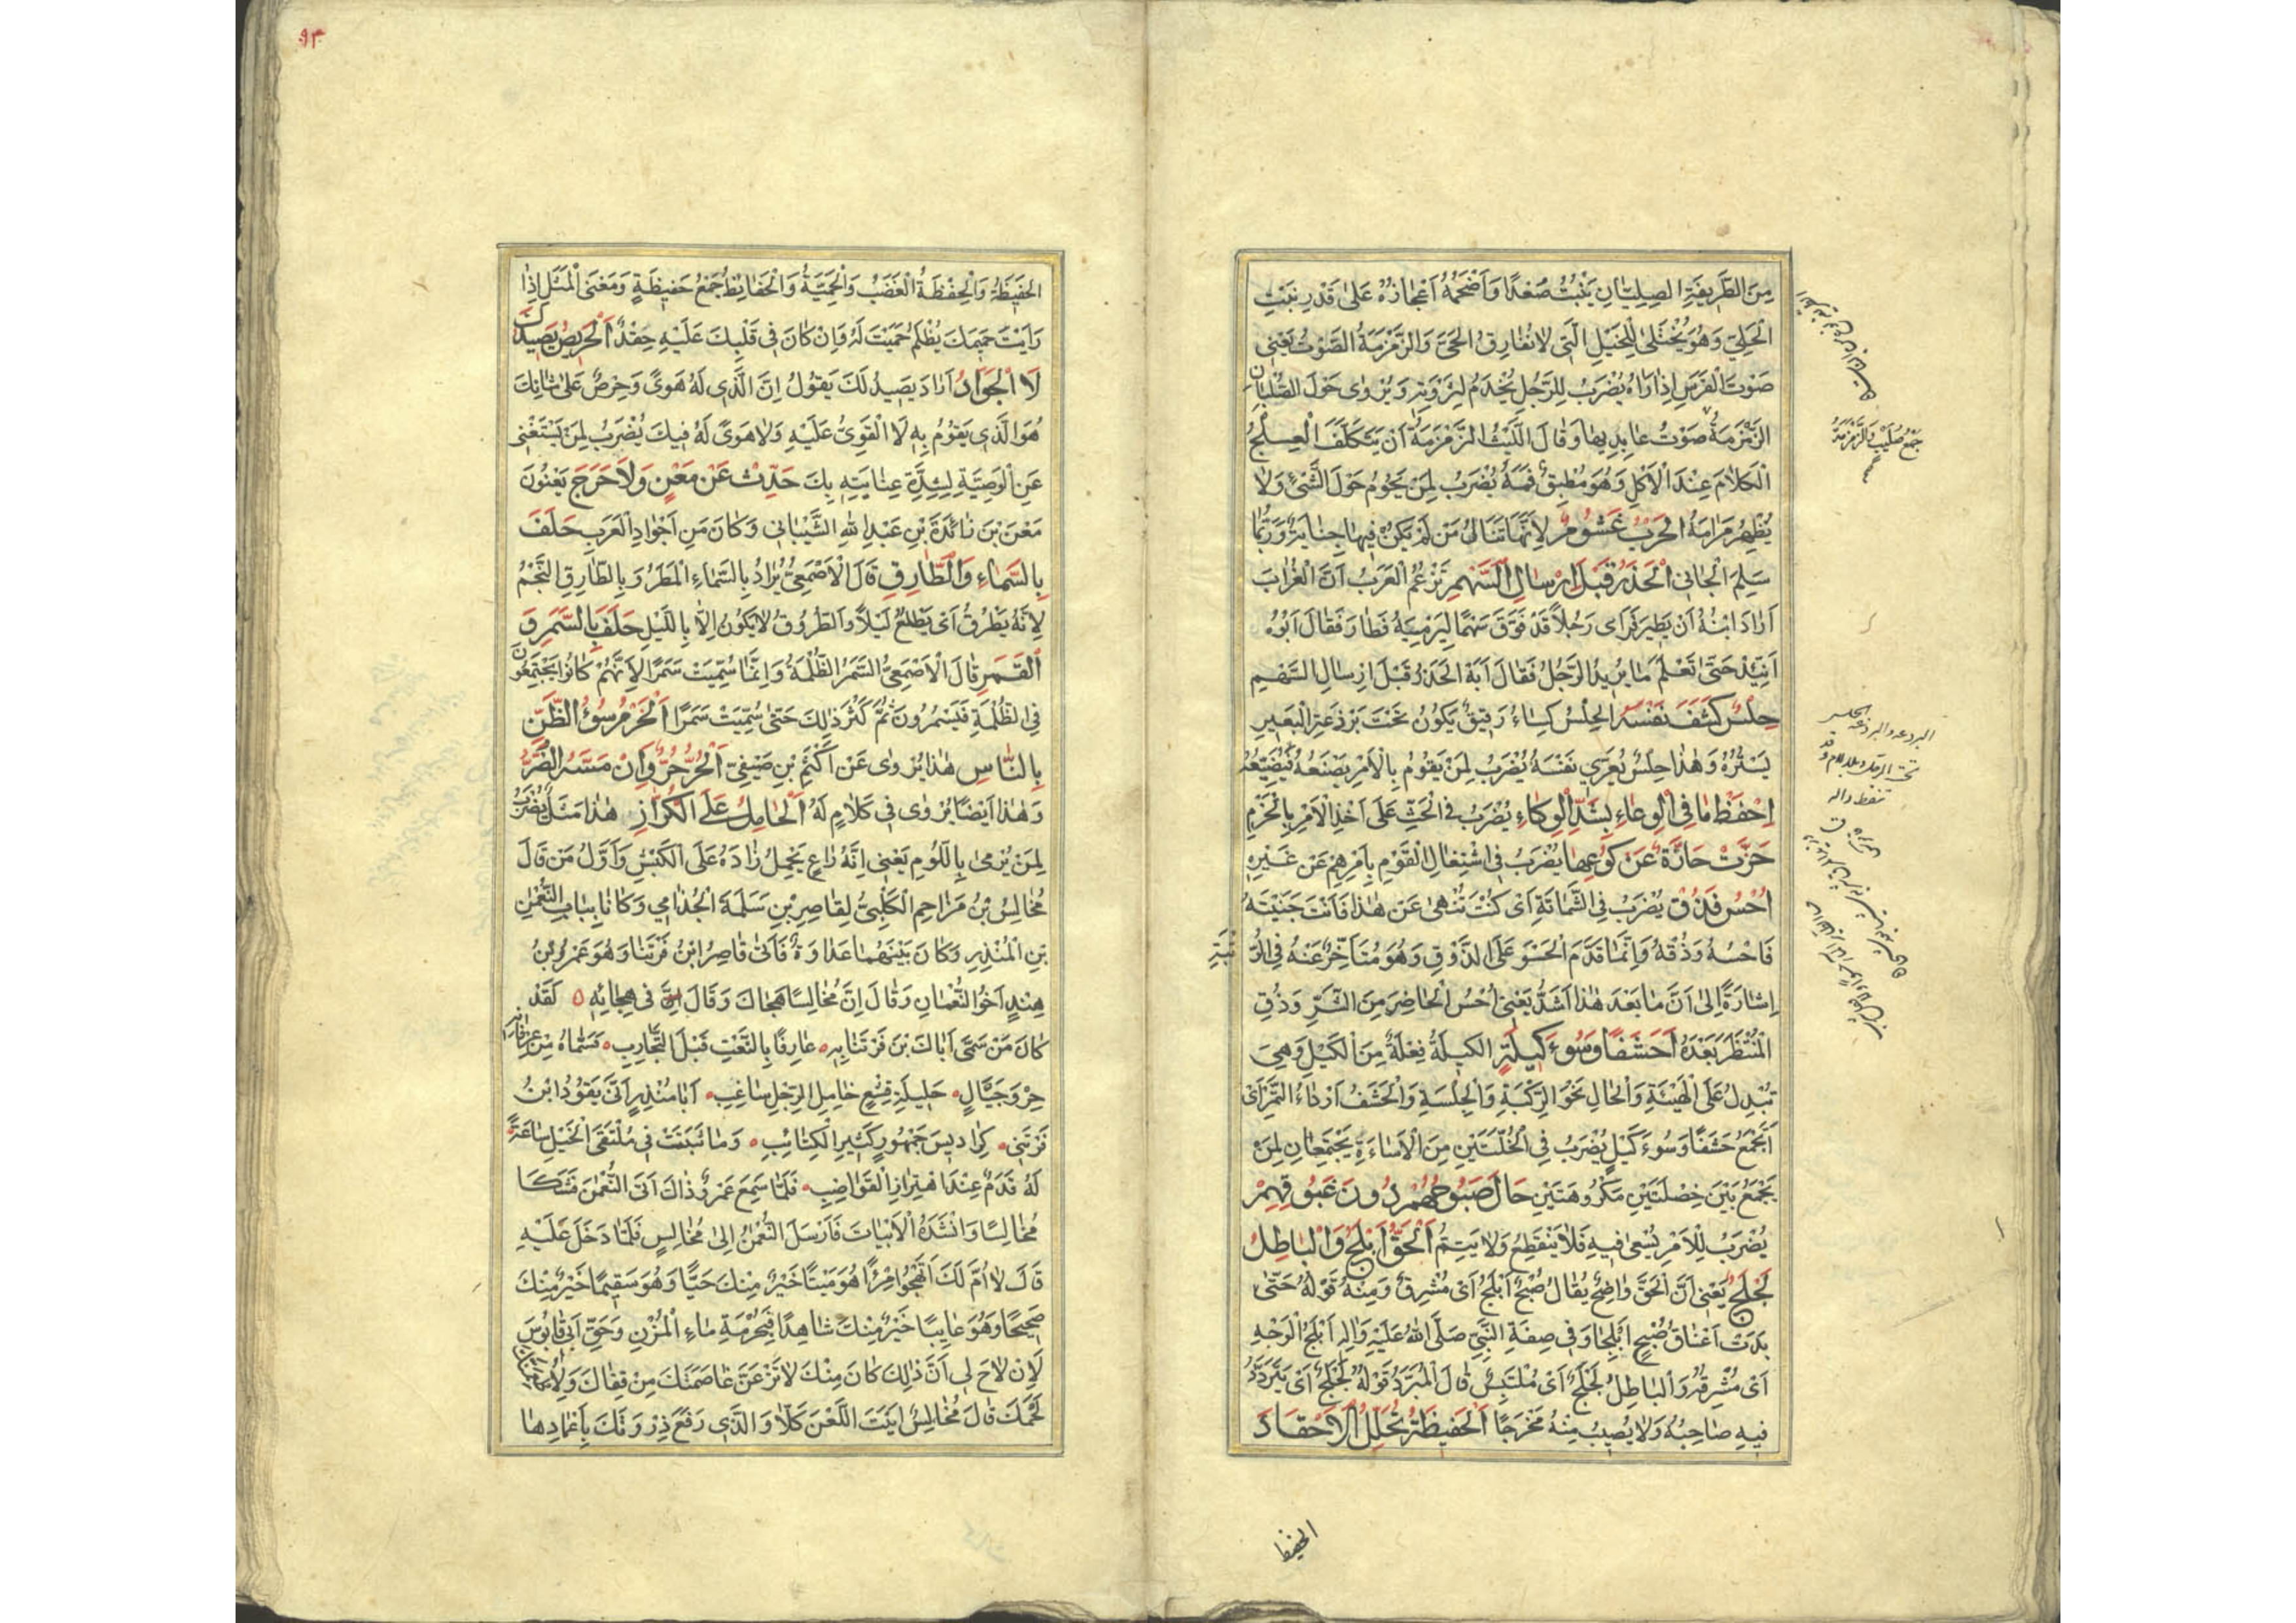 مِنَ الطَّرِيفَةِ الصِلِيّانِ يَنْبُتُ صَعَدًا وَاَضْخَمُهُ اَعْجازُهُ عَلىٰ قَدْرِ نَبْتِ
الْحَلِيّ وَهُوَ يُخْتَلىٰ لِلْخَيْلِ الَّتي لاتُفارِقُ الحَيَّ وَالزَّمْزَمَةُ الصَّوْتُ يَعْنِي
صَوْتَ الْفَرَسِ اِذٰا رَاٰهُ يُضْرَبُ لِلرَّجُلِ يُخْدَمُ لِثَرْوَتِهِ وَيُرْوىٰ حَوْلَ الصُّلْبانِ
الزَّمْزَمَةُ صَوْتُ عابِدِيها وَقالَ اللَّيْثُ الزَّمْزَمَةُ اَنْ يَتَكَلَّفَ الْعِلْجُ
الْكَلامَ عِنْدَ الْاَكْلِ وَهُوَ مُطْبِقٌ فَمَهُ يُضْرَبُ لِمَنْ يَحُومُ حَوْلَ الشَّئِ وَلا
يُظْهِرُ مَرامَهُ الحَرْبُ غَشُومٌ لِاَنَّها تَنالُ مَنْ لَمْ يَكُنْ فِيها جِنايَةٌ وَرُبَّما
سَلِمَ الْجانِي اَلْحَذَرُ قَبْلَ اِرْسالِ السَّهْمِ تَزْعُمُ الْعَرَبُ اَنَّ الْغُرابَ
اَرادَ ابْنُهُ اَنْ يَطِيرَ فَرَاى رَجُلاً قَدْ فَوَّقَ سَهْمًا لِيَرْمِيَهُ فَطارَ فَقالَ اَبُوهُ
اِتَّئِدْ حَتّىٰ تَعْلَمَ مَا يُرِيدُ الرَّجُلُ فَقالَ يَا اَبَهْ الحَذَرُ قَبْلَ اِرْسالِ السَّهْمِ
حِلْسٌ كَشَفَ نَفْسَهُ الحِلْسُ كِساءٌ رَقِيقٌ يَكُونُ تَحْتَ بَرْذَعَةِ الْبَعِيرِ
يَسْتُرُهُ وَهٰذا حِلْسٌ يُعَرّي نَفْسَهُ يُضْرَبُ لِمَنْ يَقُومُ بِالْاَمْرِ يَصْنَعُهُ فَيُضَيِّعُهُ
اِحْفَظْ مَا فِي الْوِعاءِ بِشَدِّ الْوِكاءِ يُضْرَبُ فى الْحَثِّ عَلَى اَخْذِ الْاَمْرِ بِالْحَزْمِ
حَزَّتْ حازَّةٌ عَنْ كُوعِها يُضْرَبُ فِى اشْتِغالِ الْقَوْمِ بِاَمْرِهِمْ عَنْ غَيْرِهِ
اُحْسُ فَذُقْ يُضْرَبُ فِي الشَّماتَةِ اَىْ كُنْتَ تُنْهىٰ عَنْ هٰذا فَاَنْتَ جَنَيْتَهُ
فَاحْسُهُ وَذُقْهُ وَاِنَّما قَدَّمَ الْحَسْوَ عَلَى الذَّوْقِ وَهُوَ مُتَاَخِّرٌ عَنْهُ فِي الرُّتْبَةِ
اِشارَةً اِلىٰ اَنَّ مَا بَعْدَ هٰذا اَشَدُّ يَعْنِي اُحْسُ الْحاضِرَ مِنَ الشَّرِّ وَذُقِ
الْمُنْتَظَرَ بَعْدَهُ اَحَشَفًا وَسُوءَ كَيْلَةٍ الكَيلَةُ فِعْلَةٌ مِنَ الْكَيْلِ وَهِيَ
تُبْدِلُ عَلَى الْهَيْئَةِ وَالْحالِ نَحْوُ الرِّكْبَةِ وَالْجِلْسَةِ وَالْحَشَفُ اَرْداءُ التَّمْرِ اَىْ
اَتَجْمَعُ حَشَفًا وَسُوءَ كَيْلٍ يُضْرَبُ فِي الْخُلَّتَيْنِ مِنَ الْاَساءَةِ يَجْتَمِعانِ لِمَنْ
يَجْمَعُ بَيْنَ خِصْلَتَيْنِ مَكْرُوهَتَيْنِ حَالَ صَبُوحُهُمْ دُونَ غَبُوقِهِمْ
يُضْرَبُ لِلْاَمْرِ يُسْعىٰ فِيهِ فَلا يَنْقَطِعُ وَلا يَتِمُّ اَلْحَقُّ اَبْلَجُ وَالْباطِلُ
لَجْلَجٌ يَعْنِي اَنَّ الْحَقَّ واضِحٌ يُقالُ صُبْحٌ اَبْلَجُ اَىْ مُشْرِقٌ وَمِنْهُ قَوْلُهُ حَتّىٰ
بَدَتْ اَعْناقُ صُبْحٍ اَبْلَجا وَفِي صِفَةِ النَّبِيِّ صَلَّى اللهُ عَلَيْهِ وَاٰلِهِ اَبْلَجُ الْوَجْهِ
اَىْ مُشْرِقُهُ وَالْباطِلُ لَجْلَجٌ اَىْ مُلْتَبِسٌ قالَ الْمُبَرَّدُ قَوْلُهُ لَجْلَجٌ اَىْ يَتَرَدَّدُ
فِيهِ صاحِبُهُ وَلا يُصِيبُ مِنْهُ مَخْرَجًا اَلْحَفِيظَةُ تُحَلِّلُ الْاَحْقادَ
جَمْعُ صَلِيْبٍ وَالزَّمْزَمَةُ
الحفيظ
٩٣
الحَفِيظَةُ وَالْحِفْظَةُ الْغَضَبُ وَالْحَمِيَّةُ وَالْحَفائِظُ جَمْعُ حَفِيظَةٍ وَمَعْنَى الْمَثَلِ اِذا
رَاَيْتَ حَمِيمَكَ يُظْلَمُ حَمَيْتَ لَهُ وَاِنْ كانَ فِي قَلْبِكَ عَلَيْهِ حِقْدٌ اَلْحَرِيصُ يَصِيدُكَ
لَا الْجَوادُ اَرادَ يَصِيدُ لَكَ يَقُولُ اِنَّ الَّذِي لَهُ هَوىً وَحِرْصٌ عَلىٰ شانِكَ
هُوَ الَّذِي يَقُومُ بِهِ لَا الْقَوِيُّ عَلَيْهِ وَلا هَوىً لَهُ فِيكَ يُضْرَبُ لِمَنْ يَسْتَغْنِي
عَنِ الْوَصِيَّةِ لِشِدَّةِ عِنايَتِهِ بِكَ حَدِّثْ عَنْ مَعْنٍ وَلا حَرَجَ يَعْنُونَ
مَعْنَ بْنَ زائِدَةَ بْنِ عَبْدِ اللهِ الشَّيْبانِي وَكانَ مَنِ اَجْوادِ الْعَرَبِ حَلَفَ
بِالسَّماءِ وَالطَّارِقِ قَالَ الْاَصْمَعِيُّ يُرادُ بِالسَّماءِ الْمَطَرُ وَبِالطّارِقِ النَّجْمُ
لِاَنَّهُ يَطْرُقُ اَىْ يَطْلُعُ لَيْلاً وَالطُّرُوقُ لا يَكُونُ اِلّا بِاللَّيْلِ حَلَفَ بِالسَّمَرِ وَ
الْقَمَرِ قالَ الْاَصْمَعِيُّ السَّمَرُ الظُّلْمَةُ وَاِنَّما سُمِّيَتْ سَمَرًا لِاَنَّهُمْ كانُوا يَجْتَمِعُونَ
فِي الظُّلْمَةِ فَيَسْمُرُونَ ثُمَّ كَثُرَ ذٰلِكَ حَتّىٰ سُمِّيَتْ سَمَرًا اَلْحَزْمُ سُوءُ الظَّنِّ
بِالنّاسِ هٰذا يُرْوىٰ عَنْ اَكْثَمَ بْنِ صَيْفِيّ اَلْحُرُّ حُرٌّ وَاِنْ مَسَّهُ الضُّرُّ
وَهٰذا اَيْضًا يُرْوىٰ فِي كَلامٍ لَهُ اَلْحامِلُ عَلَى الْكُرّازِ هٰذا مَثَلٌ يُضْرَبُ
لِمَنْ يُرْمىٰ بِاللُّومِ يَعْنِي اِنَّهُ راعٍ يَحْمِلُ زادَهُ عَلَى الْكَبْشِ وَاَوَّلُ مَنْ قَالَ
مُخالِسُ بْنُ مَزاحِمِ الْكَلْبِيُّ لِقاصِرِ بْنِ سَلَمَةَ الْجُذامِي وَكانا بِبابِ النُّعْمٰنِ
بْنِ الْمُنْذِرِ وَكانَ بَيْنَهُما عَداوَةٌ فَاَتىٰ قاصِرُ ابْنَ فَرْتَنا وَهُوَ عَمْرُو بْنُ
هِنْدٍ اَخُو النُّعْمانِ وَقالَ اِنَّ مُخالِسًا هَجاكَ وَقالَ فِي هِجائِهِ لَقَدْ
كانَ مَنْ سَمّىٰ اَباكَ بْنَ فَرْتَنا بِهِ عارِفًا بِالنَّعْتِ قَبْلَ التَّجارِبِ فَسَمّاهُ مِنْ عِرْفانِهِ
جِرْوَ جَيْأَلٍ خَلِيلَةِ قِشْعٍ خامِلِ الرِّجْلِ ساغِبِ اَبا مُنْذِرٍ اَنّىٰ يَقُودُ ابْنُ
فَرْتَنىٰ كَرادِيسَ جَمْهُورٍ كَثِيرِ الْكَتائِبِ وَمَا ثَبَتَتْ فِي مُلْتَقَى الْخَيْلِ ساعَةً
لَهُ قَدَمٌ عِنْدَ اهْتِزازِ الْقَواضِبِ فَلَمّا سَمِعَ عَمْرٌو ذٰلكَ اَتَى النُّعْمٰنَ فَشَكا
مُخالِسًا وَانْشَدَهُ الْاَبْياتَ فَاَرْسَلَ النُّعْمٰنُ اِلىٰ مُخالِسٍ فَلَمّا دَخَلَ عَلَيْهِ
قَالَ لا اُمَّ لَكَ اَتَهْجُوا مْرِئًا هُوَ مَيْتًا خَيْرٌ مِنْكَ حَيًّا وَهُوَ سَقِيمًا خَيْرٌ مِنْكَ
صَحِيحًا وَهُوَ غايِبًا خَيْرٌ مِنْكَ شاهِدًا فَبِحُرْمَةِ ماءِ الْمُزْنِ وَحَقِّ اَبِي قابُوسَ
لَاِنْ لاحَ لِي اَنَّ ذٰلِكَ كانَ مِنْكَ لاَنْزَعَنَّ غَلْصَمَتَكَ مِنْ قِفاكَ وَلَاُطْعِمَنَّكَ
لَحْمَكَ قالَ مُخالِسٌ اَبَيْتَ اللَّعْنَ كَلّا وَالَّذِي رَفَعَ ذِرْوَتَكَ بِاَعْمادِها